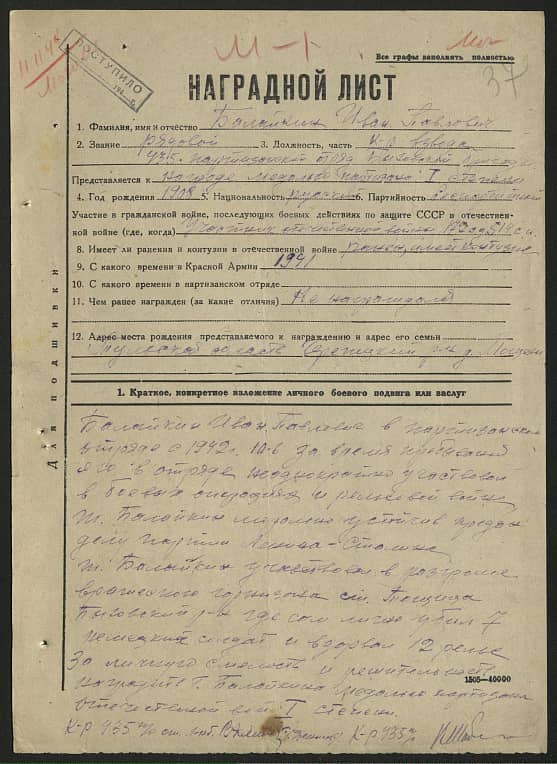 М-1
Все графы заполнять полностью
ПОСТУПИЛО
37
НАГРАДНОЙ ЛИСТ
1. Фамилия, имя и отчество Балайкин Иван Павлович
2. Звание рядовой 3. Должность, часть К-р взвода
435 партизанский отряд Быховской
Представляется к награде медалью партизана I степени
4. Год рождения 1908 5. Национальность русский 6. Партийность беспартийный
Участие в гражданской войне, последующих боевых действиях по защите СССР и отечествен-
ной войне (где, когда) Участник отечественной войны
8. Имеет ли ранения и контузии в отечественной войне ранен, имеет контузию
9. С какого времени в Красной Армии 1941
10. С какого времени в партизанском отряде
11. Чем ранее награжден (за какие отличия) Не награждался
12. Адрес места рождения представляемого к награждению и адрес его семьи
Тульская область р-н д.
Для подшивки
1. Краткое, конкретное изложение личного боевого подвига или заслуг
Балайкин Иван Павлович в партизанском
отряде с 1942 г. за время пребывания
его в отряде неоднократно участвовал
в боевых операциях и рельсовой войне
т. Балайкин морально устойчив предан
делу партии Ленина-Сталина
т. Балайкин участвовал в разгроме
вражеского гарнизона ст. Тощица
Быховский р-н где сам лично убил 7
немецких солдат и взорвал 12 рельс
За личную смелость и решительность
наградить т. Балайкина медалью партизана
отечественной войны I степени.
1505—40000
К-р 435 п/о ст. К-р 435